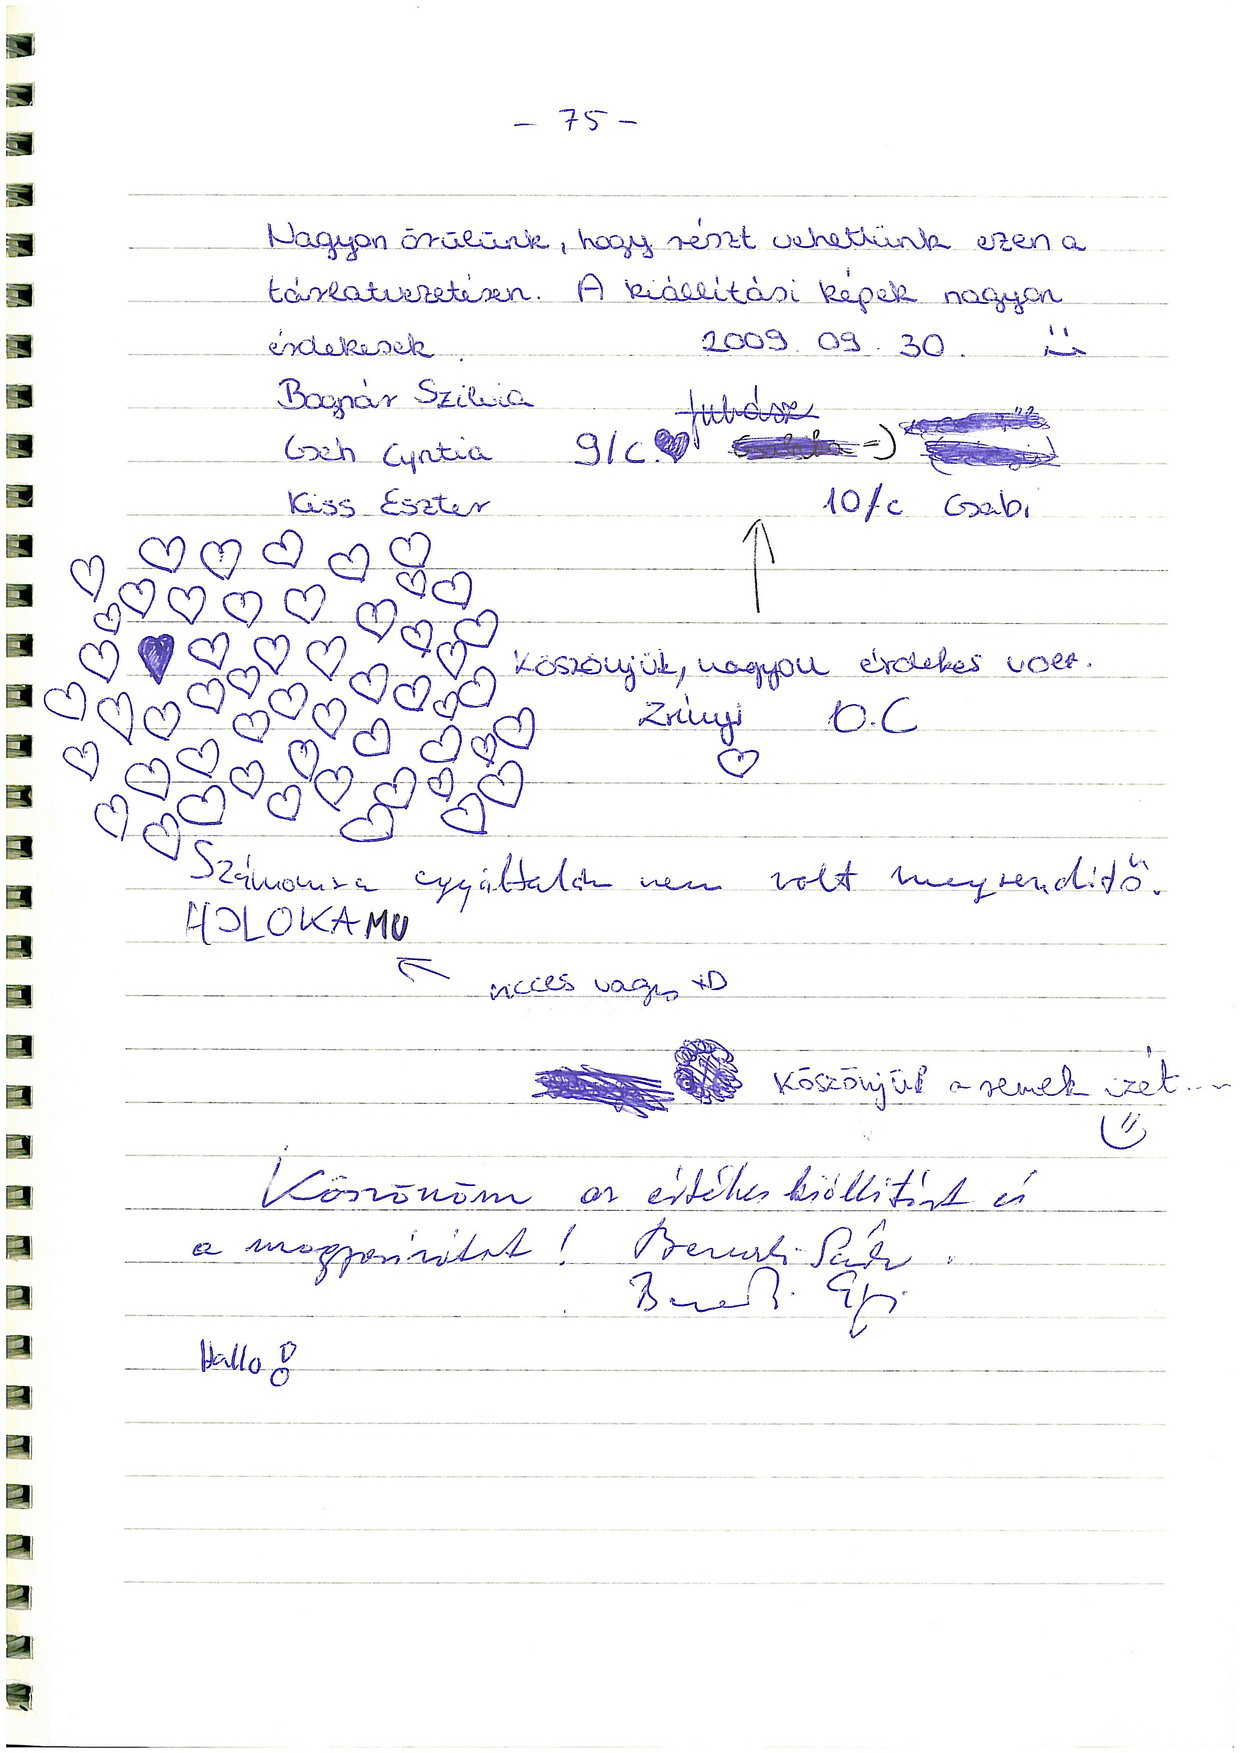 - 75 -
Nagyon örülünk, hogy részt vehettünk ezen a
tárlatvezetésen. A kiállítási képek nagyon
érdekesek. 2009. 09. 30.
Bognár Szilvia
Juhász
Cseh Cyntia 9/c. =)
Kiss Eszter 10/c Csabi
Köszönjük, nagyon érdekes volt.
Zrínyi 10.C
Számomra egyáltalán nem volt megrendítő.
HOLOKAMU
vicces vagy xD
Köszönjük a remek izét...
Köszönöm az értékes kiállítást és
a magyarázatot!
Hallo!